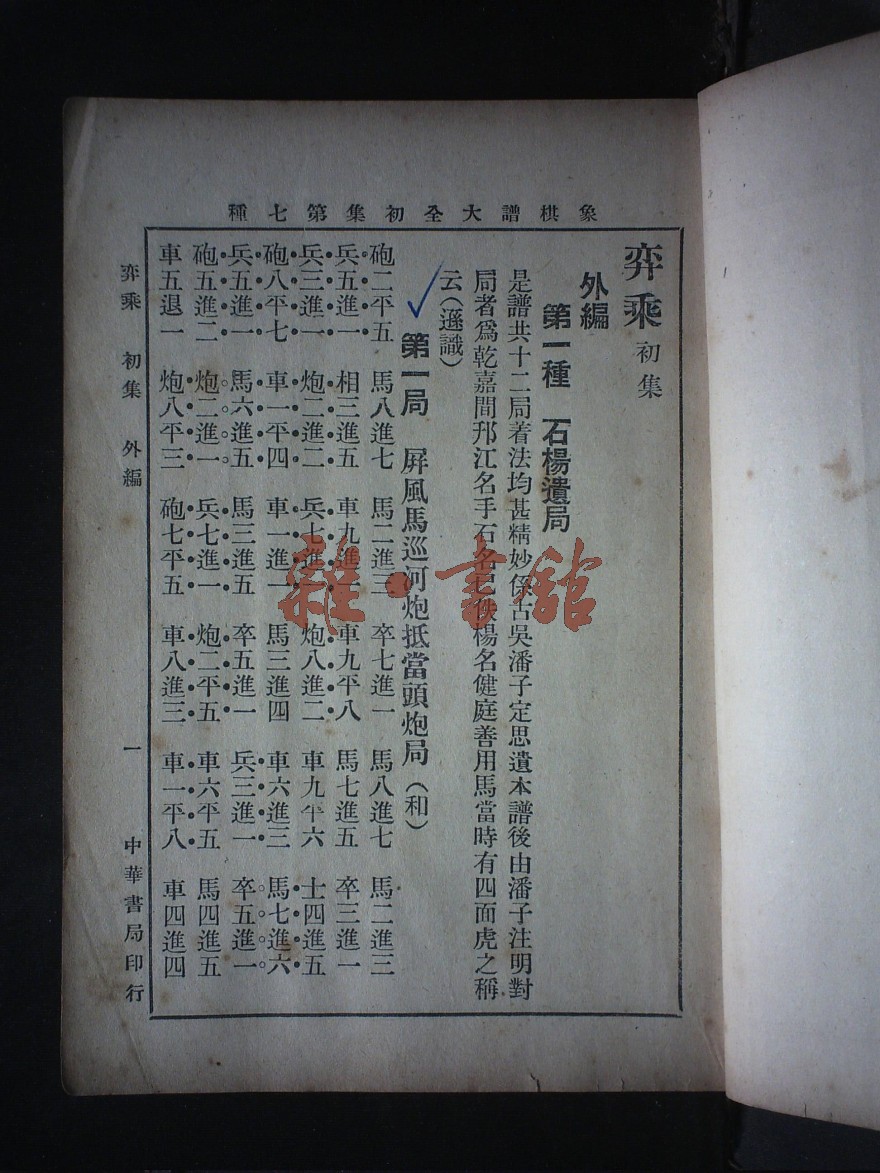 象棋譜大全初集第七種
弈乘 初集
外編
第一種　石楊遺局
是譜共十二局着法均甚精妙係古吳潘子定思遺本譜後由潘子注明對
局者為乾嘉間邗江名手石名已佚楊名健庭善用馬當時有四面虎之稱
云（遜識）
第一局　屏風馬巡河炮抵當頭炮局（和）
砲二平五　馬八進七　馬二進三　卒七進一　馬八進七　馬二進三
兵五進一　相三進五　車九進一　車九平八　馬七進五　卒三進一
兵三進一　炮二進二　兵七進一　炮八進二　車九平六　士四進五
砲八平七　車一平四　車一進一　馬三進四　車六進三　馬七進六
兵五進一　馬六進五　馬三進五　卒五進一　兵三進一　卒五進一
砲五進二　炮二進一　兵七進一　炮二平五　車六平五　馬四進五
車五退一　炮八平三　砲七平五　車八進三　車一平八　車四進四
弈乘　初集　外編　一　中華書局印行
雜·書館